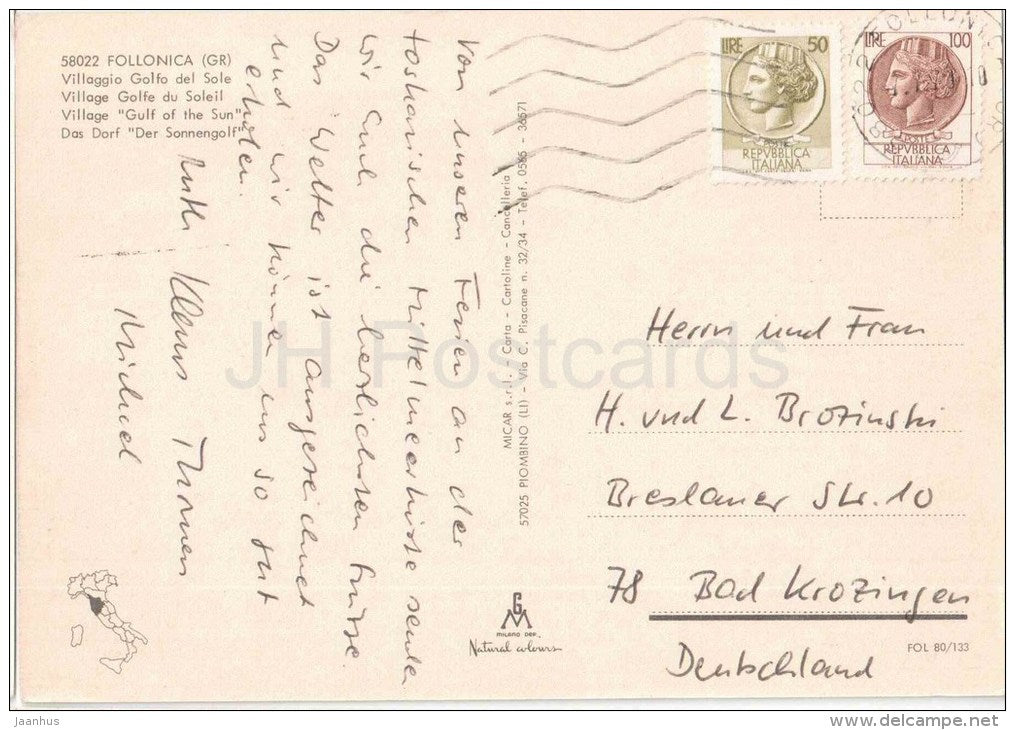 58022 FOLLONICA (GR)
Villaggio Golfo del Sole
Village Golfe du Soleil
Village "Gulf of the Sun"
Das Dorf "Der Sonnengolf"
Von unseren Ferien an der
toskanischen Mittelmeerküste senden
wir Euch die herzlichsten Grüsse.
Das Wetter ist ausgezeichnet
und wir können uns so gut
erholen.
Ruth Klaus Thomas
Michael
MICAR s.r.l. - Carta - Cartoline - Cancelleria
57025 PIOMBINO (LI) - Via C. Pisacane n. 32/34 - Telef. 0565 - 36571
LIRE 50
POSTE
REPVBBLICA
ITALIANA
LIRE 100
POSTE
REPVBBLICA
ITALIANA
58022 FOLLONICA
Herrn und Frau
H. und L. Brozinski
Breslauer Str. 10
78 Bad Krozingen
Deutschland
GM
MILANO DEP.
Natural colours
FOL 80/133
JH Postcards
Jaanhus
www.delcampe.net